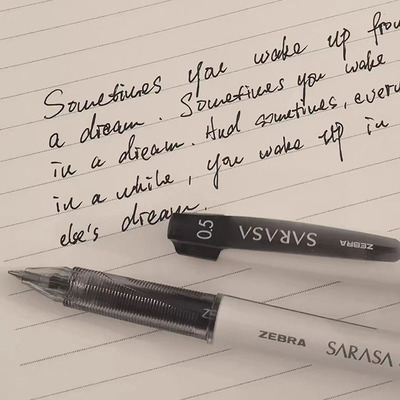 Sometimes you wake up from
a dream. Sometimes you wake
in a dream. And sometimes, every
in a while, you wake up in
else's dream.
0.5 SARASA ZEBRA
ZEBRA SARASA